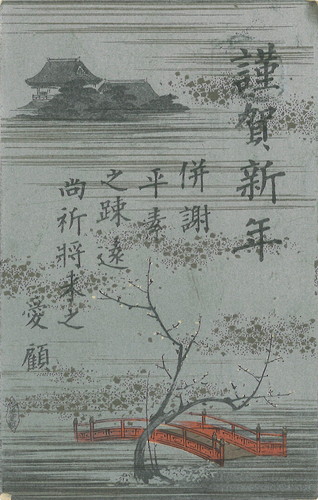 謹賀新年
併謝
平素
之踈遠
尚祈将来之
愛顧